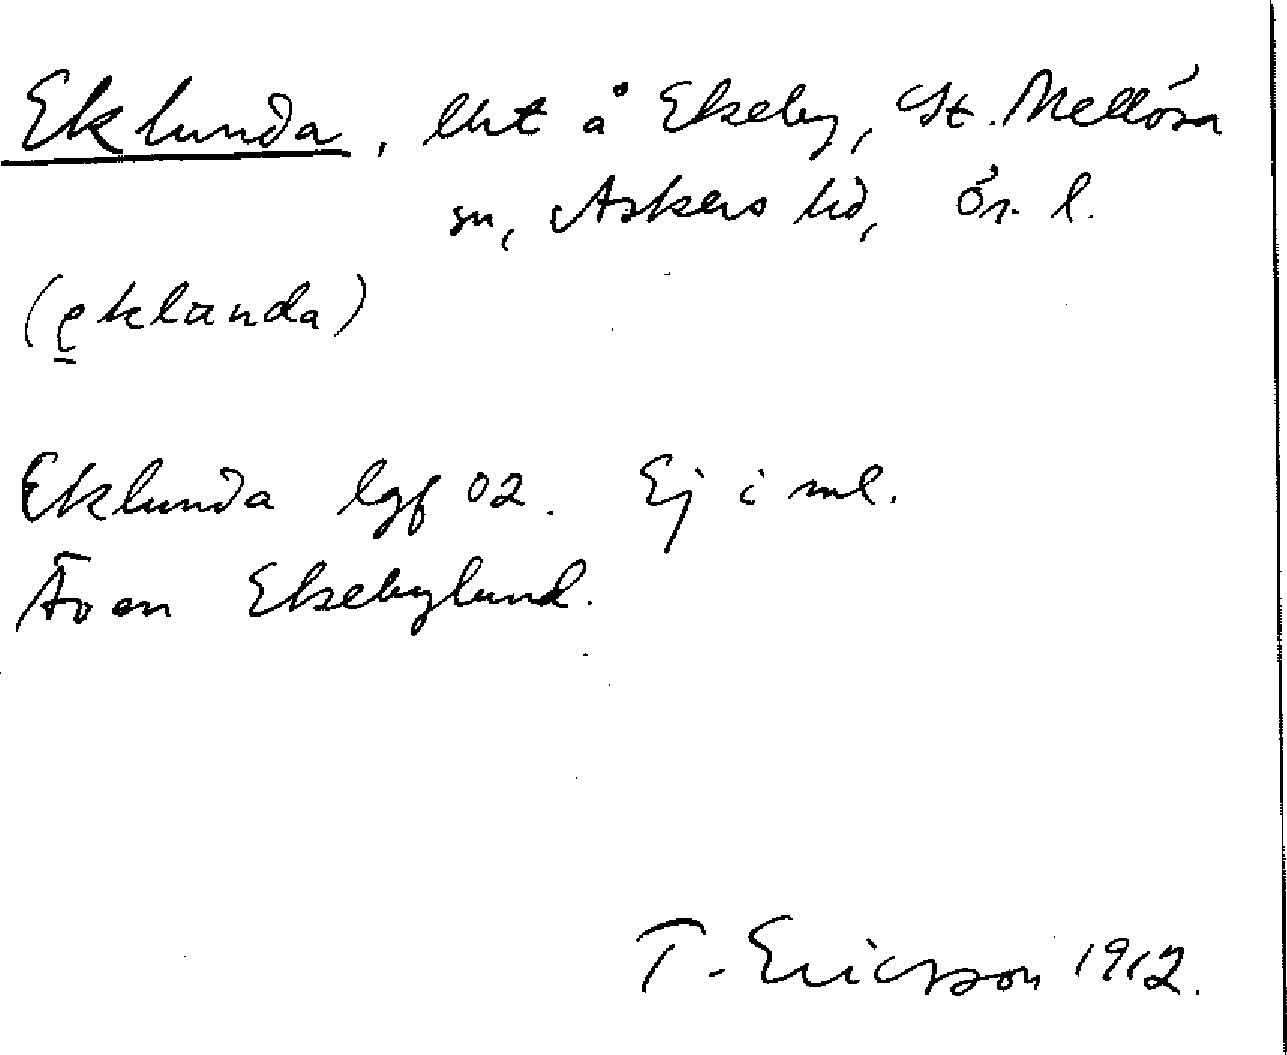 Eklunda, lht å Ekeby, St. Mellösa
sn, Askers hd, Ör. l.
(eklunda)
Eklunda lgf 02. Ej i ml.
Även Ekebylund.
T. Ericsson 1912.